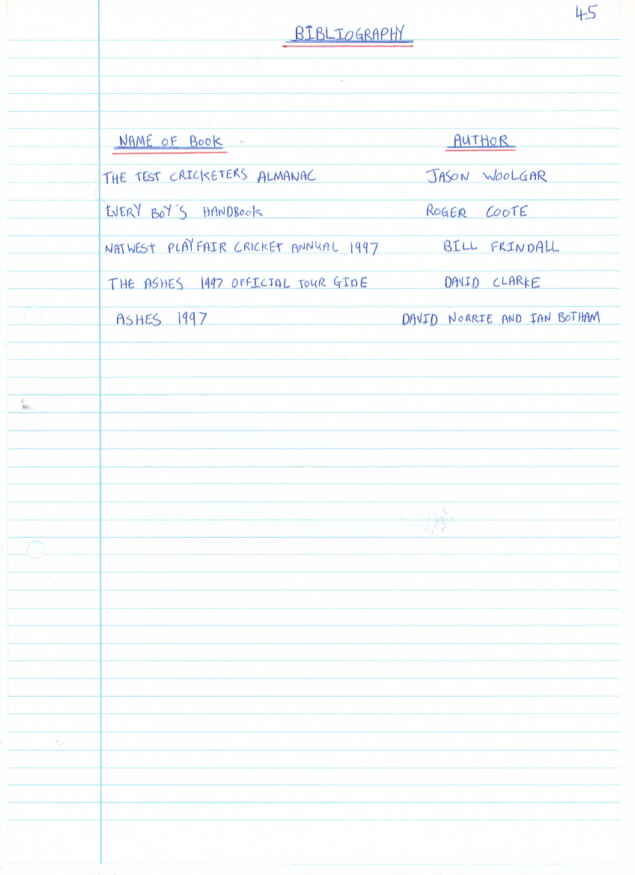 45
BIBLIOGRAPHY
NAME OF BOOK AUTHOR
THE TEST CRICKETERS ALMANAC JASON WOOLGAR
EVERY BOY'S HANDBOOK ROGER COOTE
NATWEST PLAYFAIR CRICKET ANNUAL 1997 BILL FRINDALL
THE ASHES 1997 OFFICIAL TOUR GIDE DAVID CLARKE
ASHES 1997 DAVID NORRIE AND IAN BOTHAM